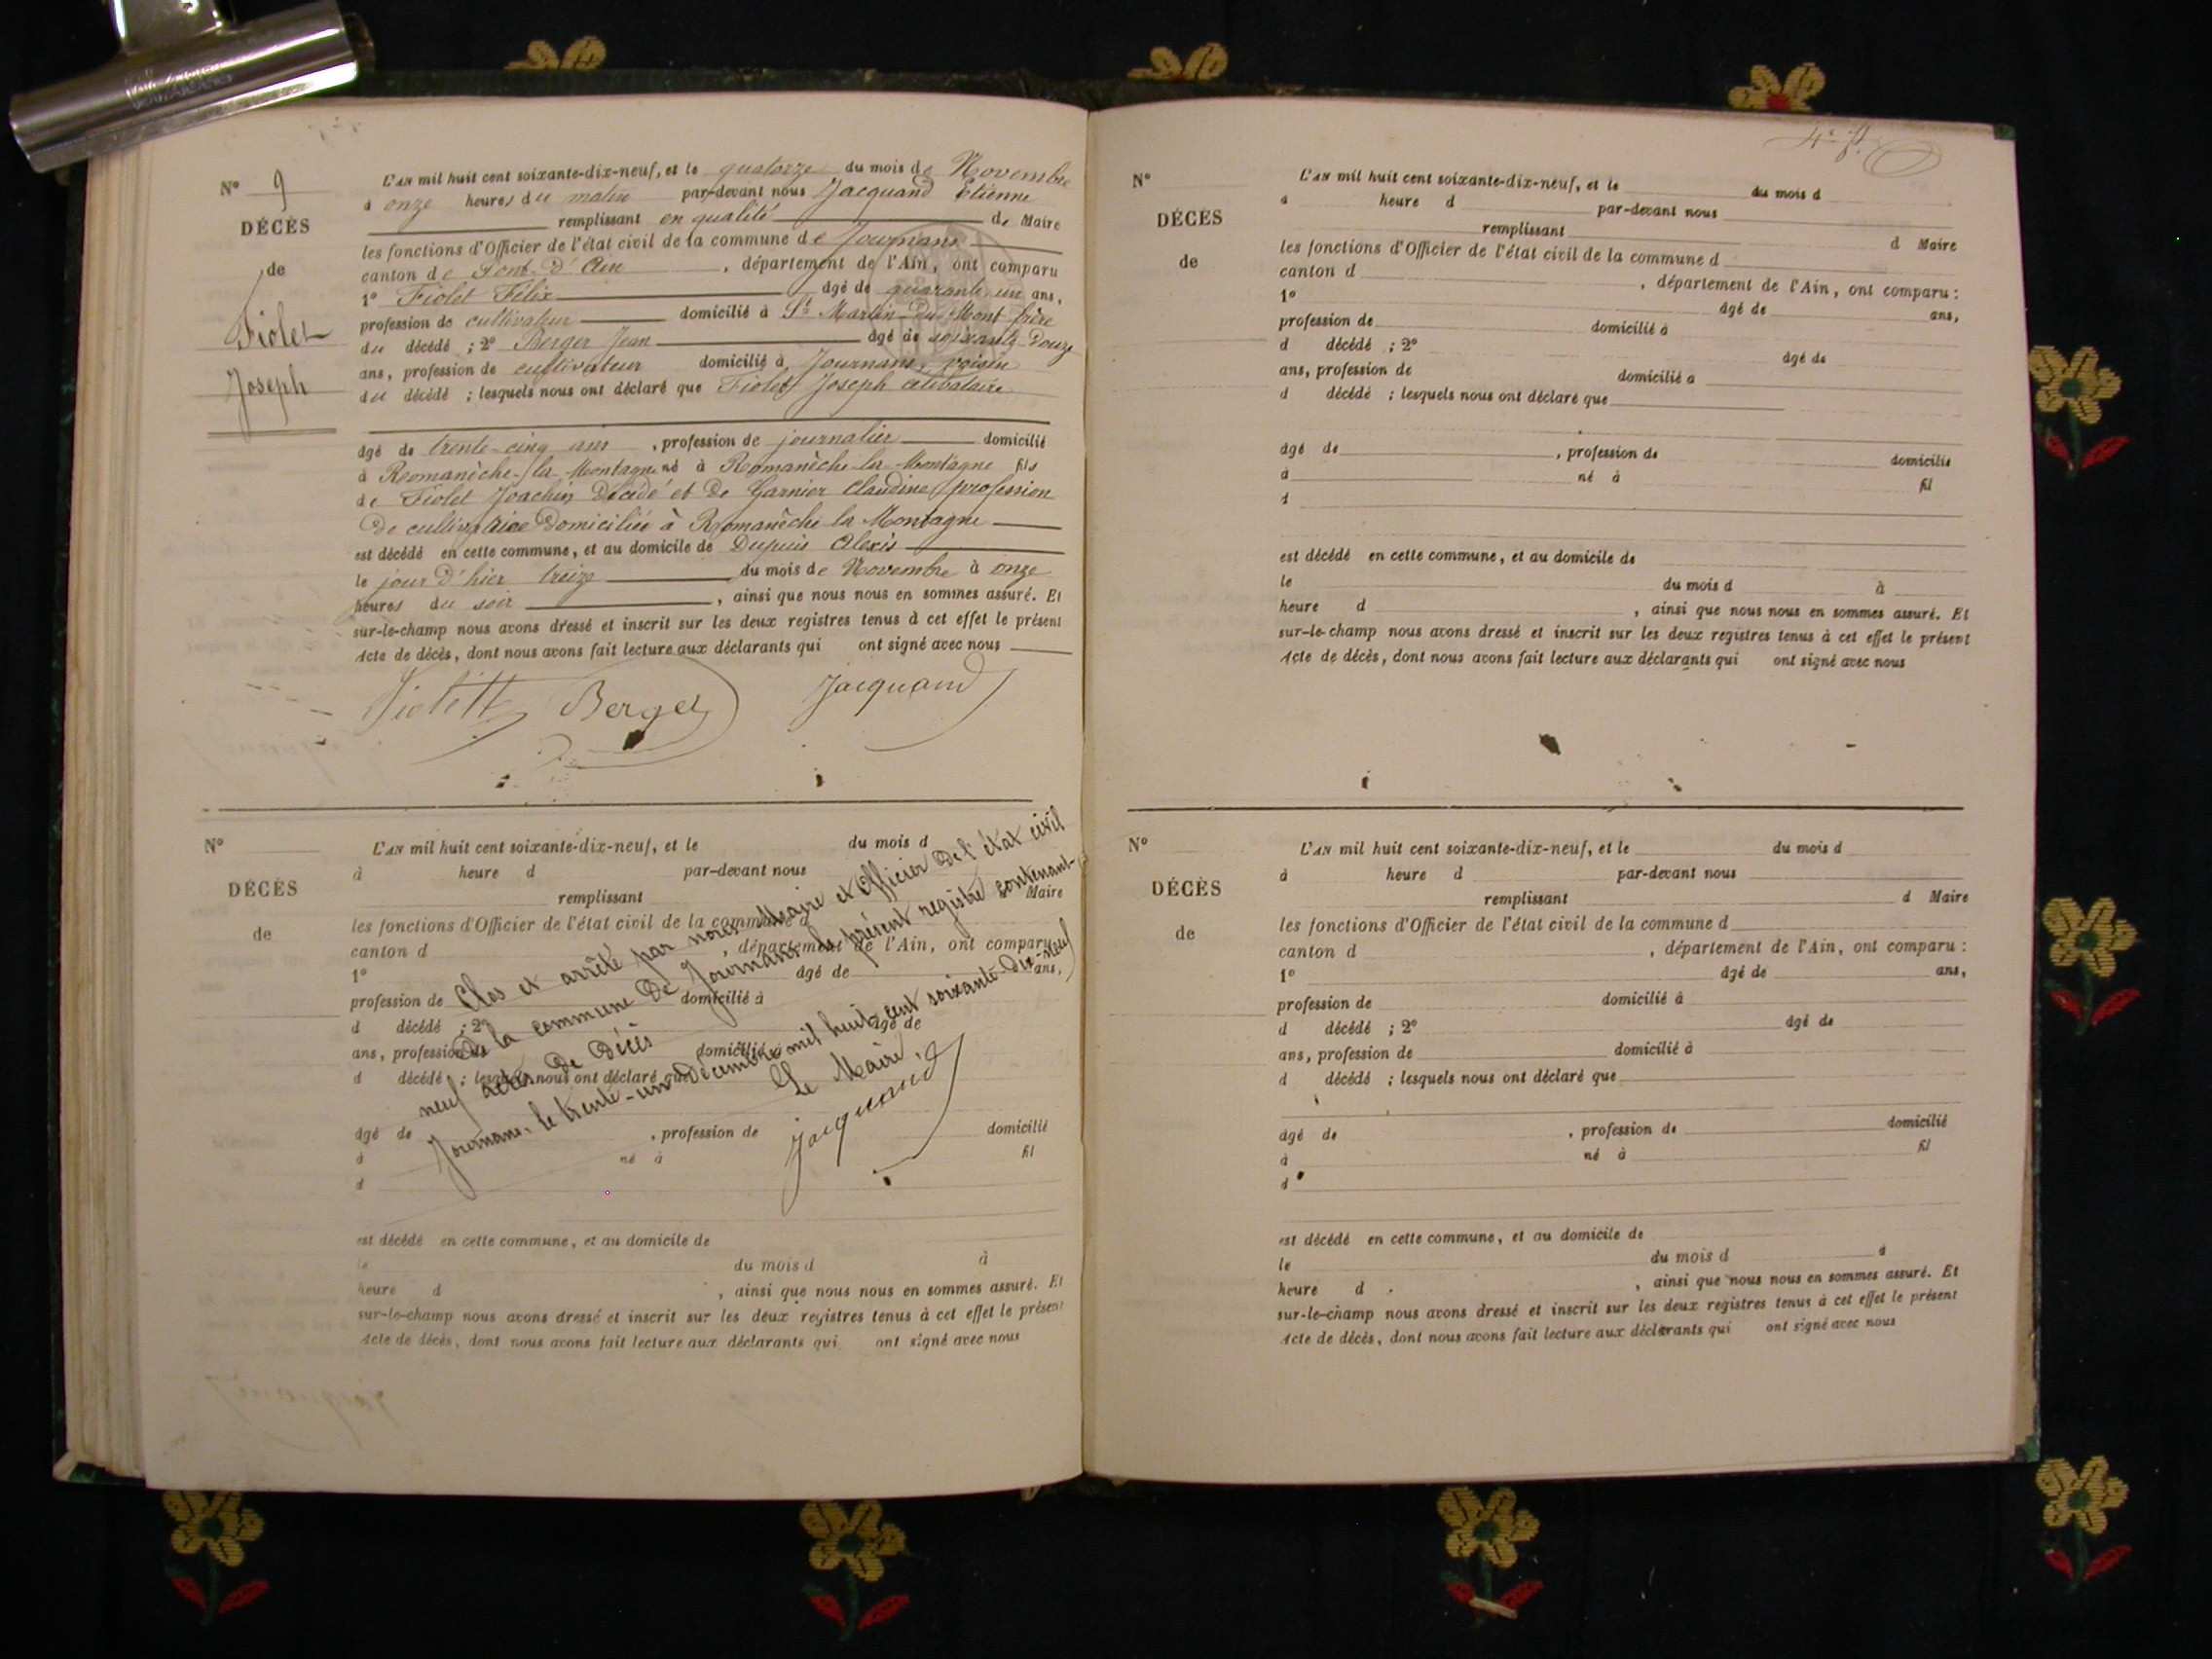 N° 9
DÉCÈS
de
Fiolet
Joseph
L'AN mil huit cent soixante-dix-neuf, et le quatorze du mois de Novembre
à onze heures du matin par-devant nous Jacquand Etienne
remplissant en qualité de Maire
les fonctions d'Officier de l'état civil de la commune de Journans
canton de Pont d'Ain, département de l'Ain, ont comparu
1° Fiolet Félix âgé de quarante un ans,
profession de cultivateur domicilié à St Martin du Mont frère
du décédé ; 2° Berger Jean âgé de soixante douze
ans, profession de cultivateur domicilié à Journans, voisin
du décédé ; lesquels nous ont déclaré que Fiolet Joseph célibataire
âgé de trente-cinq ans, profession de journalier domicilié
à Romanèche-la Montagne né à Romanèche la Montagne fils
de Fiolet Joachin décédé et de Garnier Claudine profession
de cultivatrice domiciliée à Romanèche la Montagne
est décédé en cette commune, et au domicile de Dupuis Alexis
le jour d'hier treize du mois de Novembre à onze
heures du soir, ainsi que nous nous en sommes assuré. Et
sur-le-champ nous avons dressé et inscrit sur les deux registres tenus à cet effet le présent
Acte de décès, dont nous avons fait lecture aux déclarants qui ont signé avec nous
Berger Jacquand
N°
DÉCÈS
de
L'AN mil huit cent soixante-dix-neuf, et le du mois d
à heure d par-devant nous
remplissant Maire
les fonctions d'Officier de l'état civil de la commune d
canton d , département de l'Ain, ont comparu
1° âgé de ans,
profession de domicilié à
d décédé ; 2° âgé de
ans, profession de domicilié à
d décédé ; lesquels nous ont déclaré que
âgé de , profession de domicilié
à né à fil
d
est décédé en cette commune, et au domicile de
le du mois d à
heure d , ainsi que nous nous en sommes assuré. Et
sur-le-champ nous avons dressé et inscrit sur les deux registres tenus à cet effet le présent
Acte de décès, dont nous avons fait lecture aux déclarants qui ont signé avec nous
Clos et arrêté par nous Maire et Officier de l'état civil
de la commune de Journans le présent registre contenant
neuf actes de décès
Journans, le trente-un décembre mil huit cent soixante-dix-neuf
Le Maire,
Jacquand
N°
DÉCÈS
de
L'AN mil huit cent soixante-dix-neuf, et le du mois d
à heure d par-devant nous
remplissant d Maire
les fonctions d'Officier de l'état civil de la commune d
canton d , département de l'Ain, ont comparu :
1° âgé de ans,
profession de domicilié à
d décédé ; 2° âgé de
ans, profession de domicilié à
d décédé ; lesquels nous ont déclaré que
âgé de , profession de domicilié
à né à fil
d
est décédé en cette commune, et au domicile de
le du mois d à
heure d , ainsi que nous nous en sommes assuré. Et
sur-le-champ nous avons dressé et inscrit sur les deux registres tenus à cet effet le présent
Acte de décès, dont nous avons fait lecture aux déclarants qui ont signé avec nous
N°
DÉCÈS
de
L'AN mil huit cent soixante-dix-neuf, et le du mois d
à heure d par-devant nous
remplissant d Maire
les fonctions d'Officier de l'état civil de la commune d
canton d , département de l'Ain, ont comparu :
1° âgé de ans,
profession de domicilié à
d décédé ; 2° âgé de
ans, profession de domicilié à
d décédé ; lesquels nous ont déclaré que
âgé de , profession de domicilié
à né à fil
d
est décédé en cette commune, et au domicile de
le du mois d à
heure d , ainsi que nous nous en sommes assuré. Et
sur-le-champ nous avons dressé et inscrit sur les deux registres tenus à cet effet le présent
Acte de décès, dont nous avons fait lecture aux déclarants qui ont signé avec nous